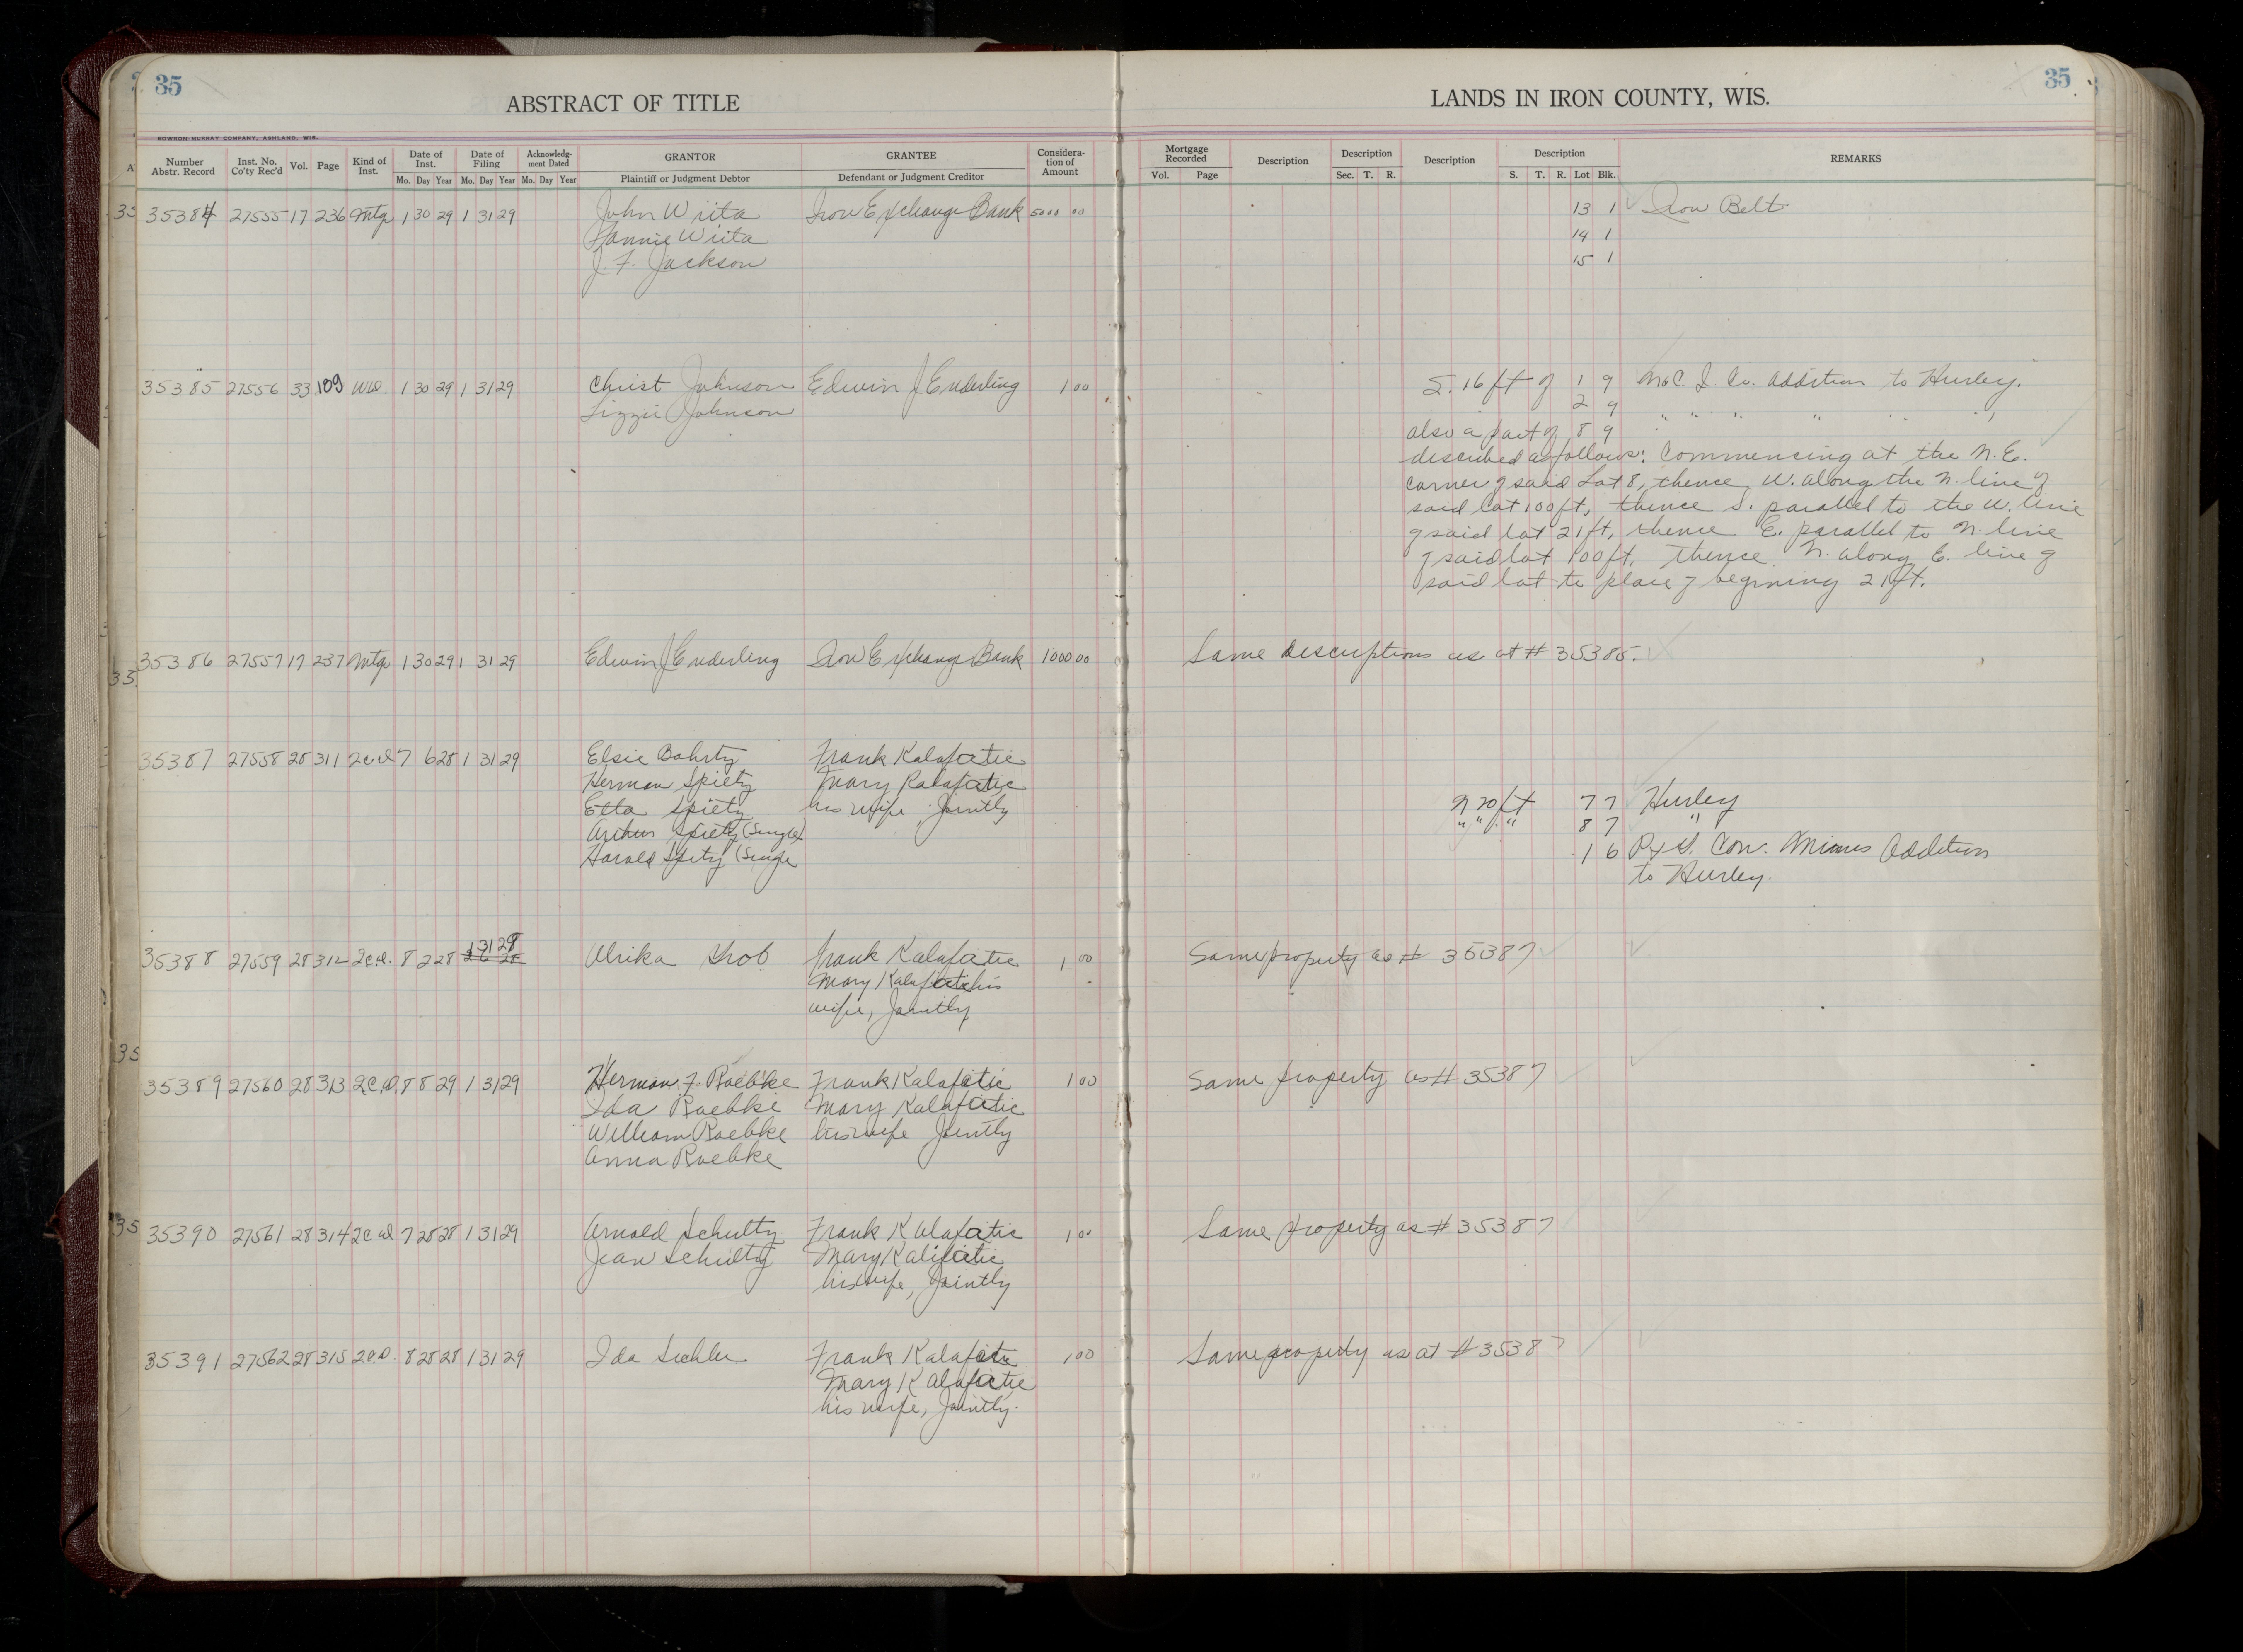 35
35
ABSTRACT OF TITLE
LANDS IN IRON COUNTY, WIS.
BOWRON-MURRAY COMPANY, ASHLAND, WIS.
Number Abstr. Record Inst. No. Co'ty Rec'd Vol. Page Kind of Inst. Date of Inst. Date of Filing Acknowledg-ment Dated GRANTOR GRANTEE Considera-tion of Amount Mortgage Recorded Description Description Description Description REMARKS
Mo. Day Year Mo. Day Year Mo. Day Year Plaintiff or Judgment Debtor Defendant or Judgment Creditor Vol. Page Sec. T. R. S. T. R. Lot Blk.
35384 27555 17 236 Mtg 1 30 29 1 31 29 John Wiita Iron Exchange Bank 5000 00 13 1 Iron Belt
Fannie Wiita 14 1
J. F. Jackson 15 1
35385 27556 33 189 WD. 1 30 29 1 31 29 Christ Johnson Edwin J Enderling 1 00 S. 16 ft of 1 9 M & C. I. Co. Addition to Hurley.
Lizzie Johnson 2 9 " " " " " "
also a part of 8 9
described as follows: Commencing at the N.E.
corner of said Lot 8, thence W. along the N. line of
said lot 100 ft, thence S. parallel to the W. line
of said lot 21 ft, thence E. parallel to N. line
of said lot 100 ft. thence N. along E. line of
said lot to place of beginning 21 ft.
35386 27557 17 237 Mtg 1 30 29 1 31 29 Edwin J Enderling Iron Exchange Bank 1000 00 Same descriptions as at # 35385.
35387 27558 28 311 2cd 7 6 28 1 31 29 Elsie Frank Kalafatic
Herman Spiety Mary Kalafatic
Etta Spiety his wife, Jointly N 20 ft 7 7 Hurley
Arthur Spiety (Single) " " " 8 7 "
Harold Spity (Single 1 6 Con. Mines Addition
to Hurley.
35388 27559 28 312 2cd. 8 2 28 1 31 29 Ulrika Grob Frank Kalafatic 1 00 Same property as # 35387
Mary Kalafatic his
wife, Jointly
35389 27560 28 313 2C.D. 8 8 29 1 31 29 Herman F. Raebke Frank Kalafatic 1 00 Same property as # 35387
Ida Raebke Mary Kalafatic
William Raebke his wife Jointly
Anna Raebke
35390 27561 28 314 2cd 7 28 28 1 31 29 Arnold Schultz Frank Kalafatic 1 00 Same property as # 35387
Jean Schultz Mary Kalifatic
his wife, Jointly
35391 27562 28 315 2C.D. 8 28 28 1 31 29 Ida Frank Kalafatic 1 00 Same property as at # 35387
Mary Kalafatic
his wife, Jointly.